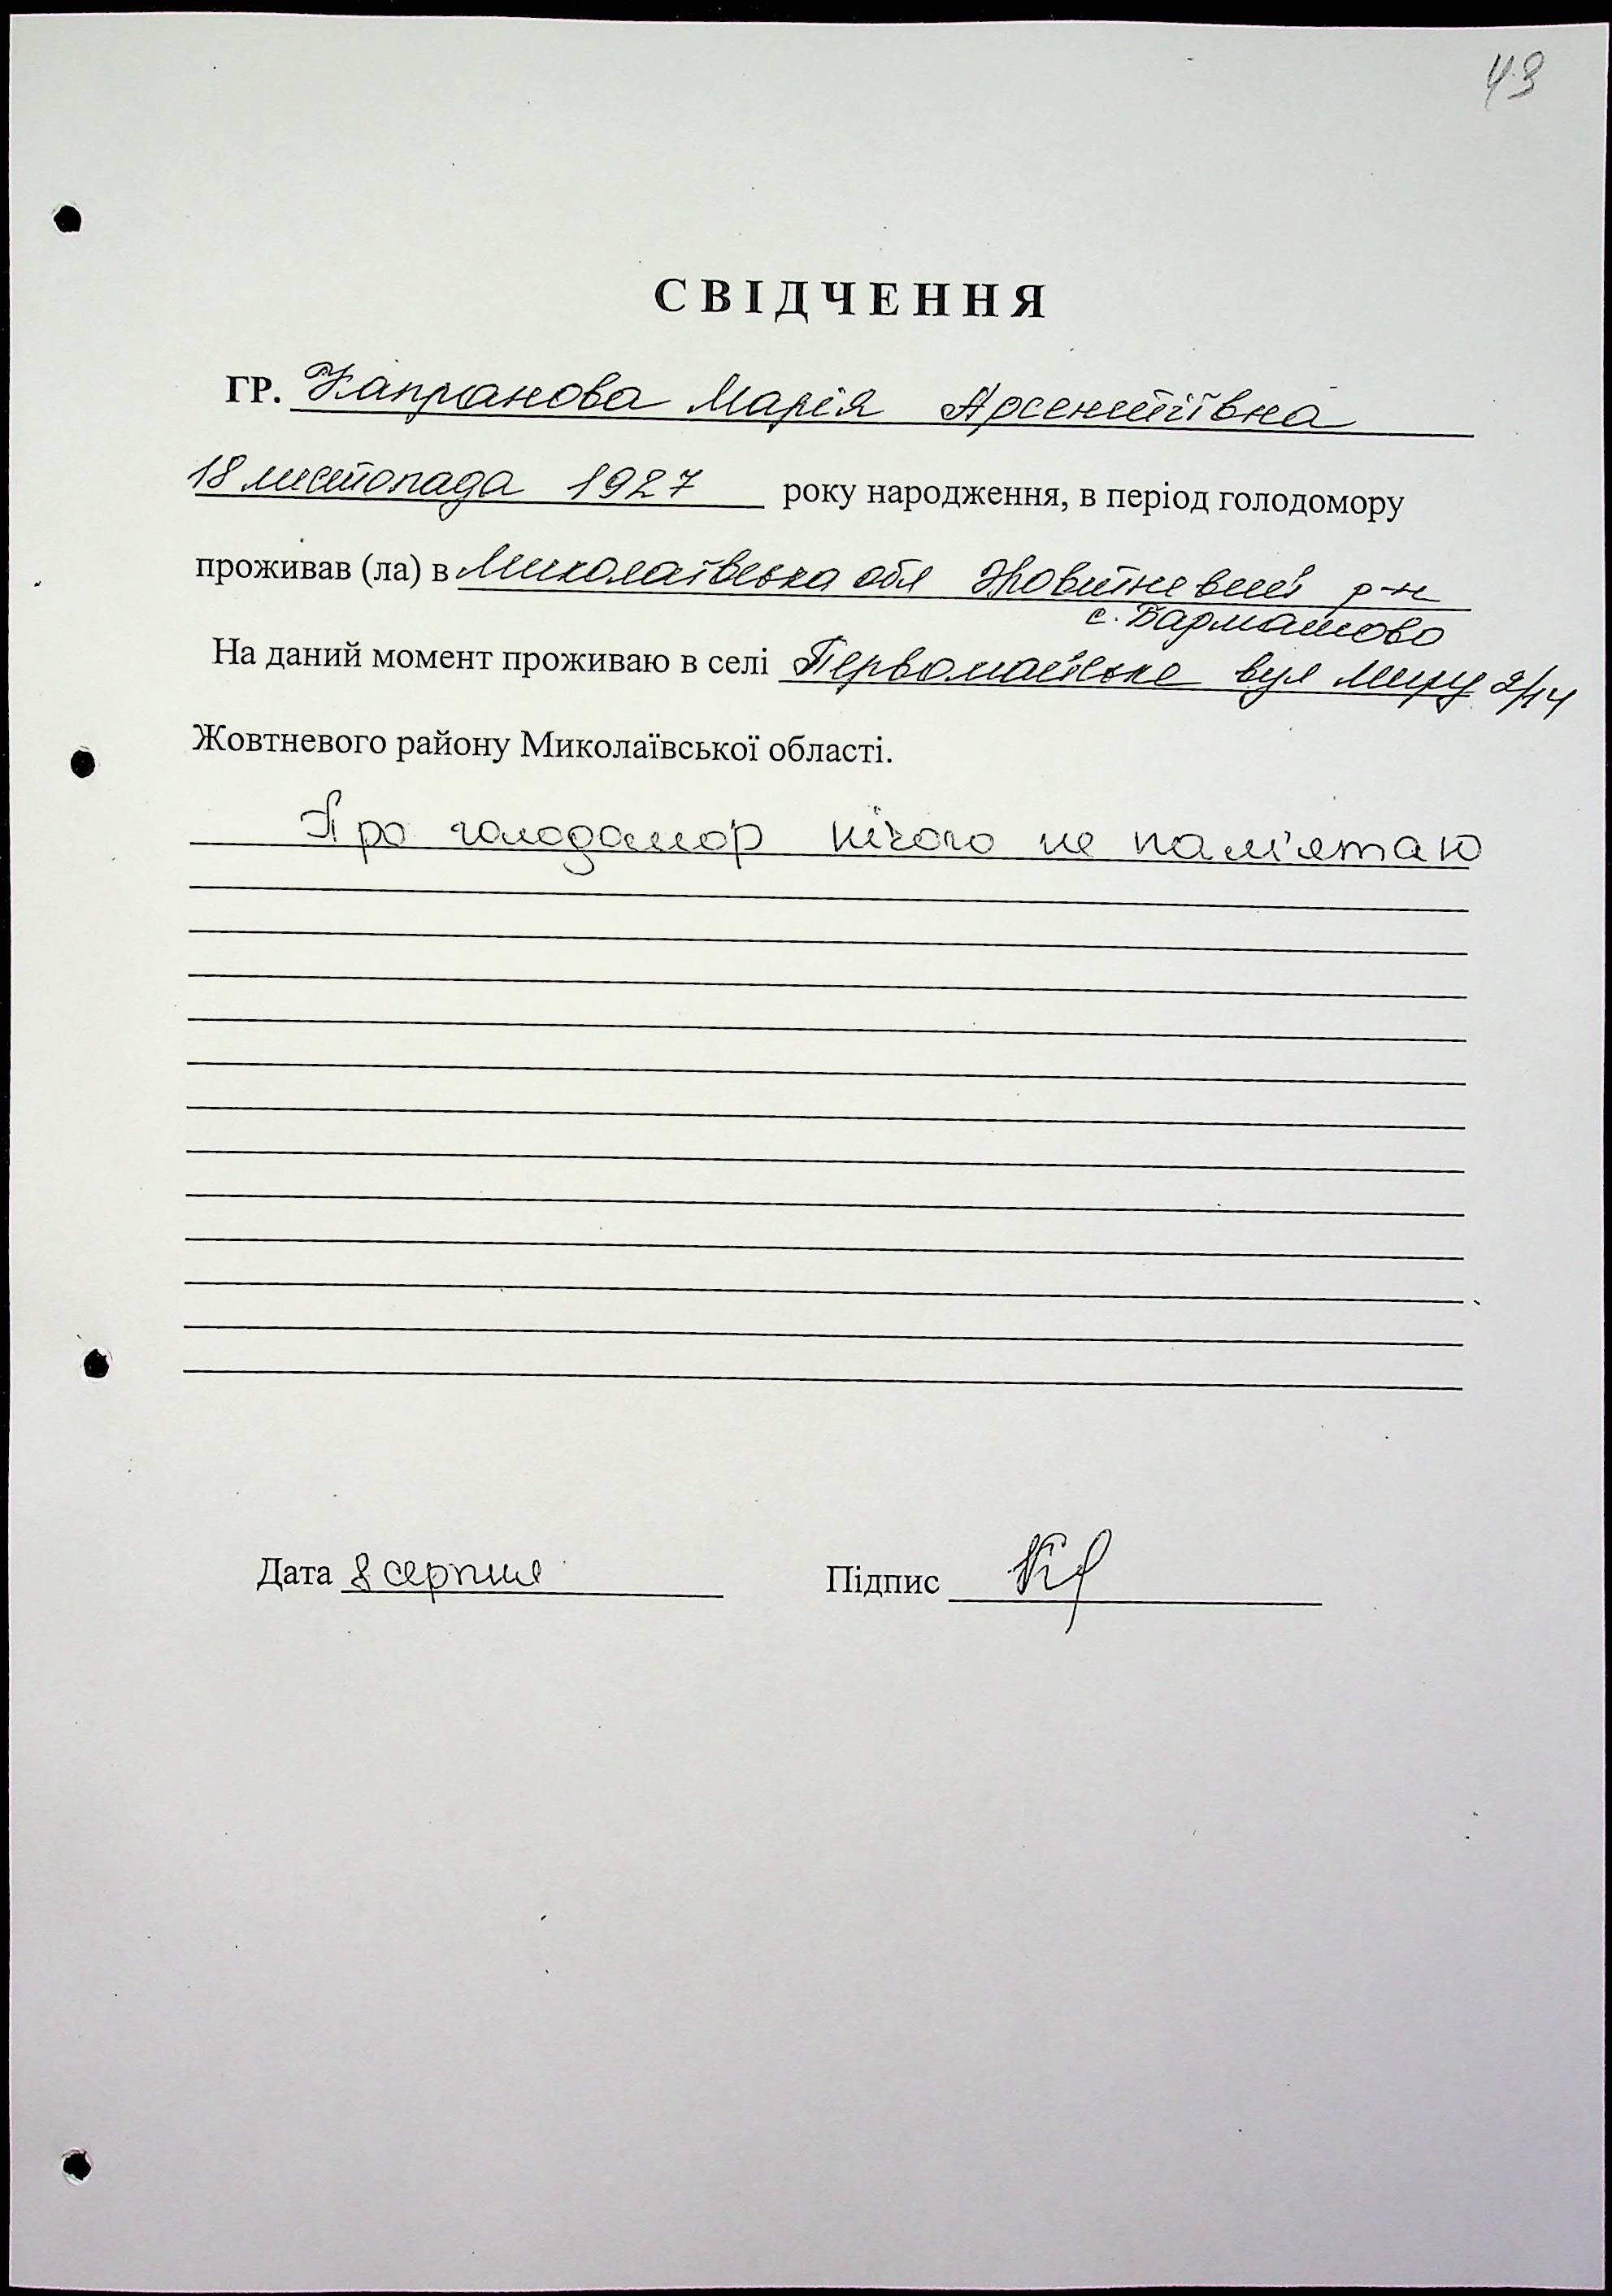 43
СВІДЧЕННЯ
ГР. Капранова Марія Арсентіївна
18 листопада 1927 року народження, в період голодомору
проживав (ла) в Миколаївська обл Жовтневий р-н
с. Бармашово
На даний момент проживаю в селі Первомайське вул Миру 2/14
Жовтневого району Миколаївської області.
Про голодомор нічого не пам'ятаю
Дата 8 серпня Підпис